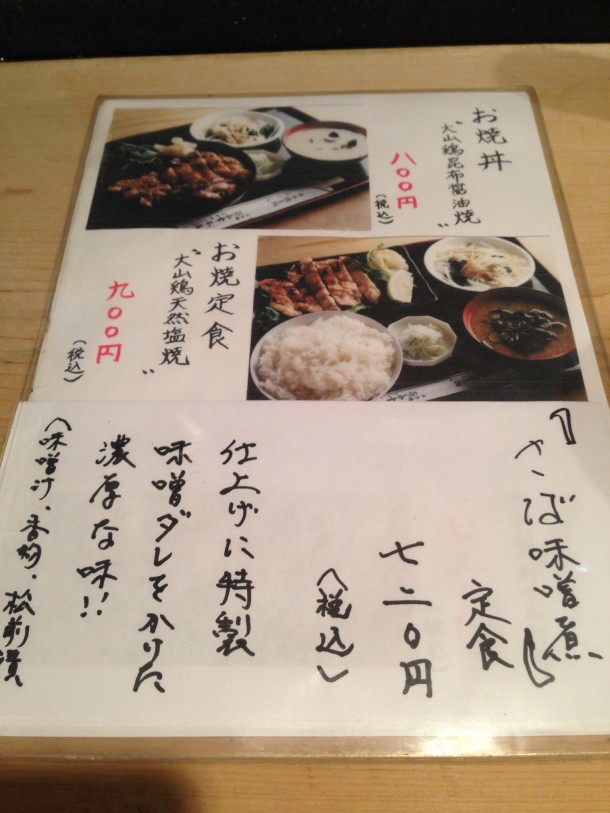 お焼丼
"大山鶏昆布醤油焼"
八〇〇円
（税込）
お焼定食
"大山鶏天然塩焼"
九〇〇円
（税込）
『さば味噌煮』
定食
七二〇円
（税込）
仕上げに特製
味噌ダレをかけた
濃厚な味!!
（味噌汁、香物、松前漬